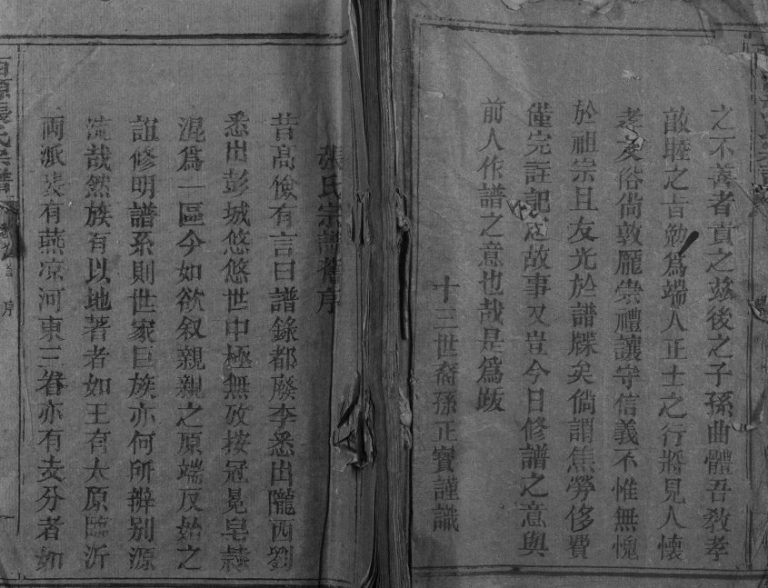 之不善者責之茲後之子孫曲體吾敎孝
敬睦之旨勉為端人正士之行將見人懷
孝友俗尙敦龐崇禮讓守信義不惟無愧
於祖宗且友光於譜牒矣倘謂焦勞侈費
僅完註記 故事又豈今日修譜之意與
前人作譜之意也哉是為跋
十三世裔孫正寳謹識
張氏宗譜舊序
昔高儉有言曰譜錄都廢李悉出隴西劉
悉出彭城悠悠世中極無攷按冠冕皂隸
混為一區今如欲叙親親之原端反始之
誼修明譜系則世家巨族亦何所辨别源
流哉然族有以地著者如王有太原臨沂
両派裴有燕凉河東三眷亦有支分者如
張氏宗譜
序